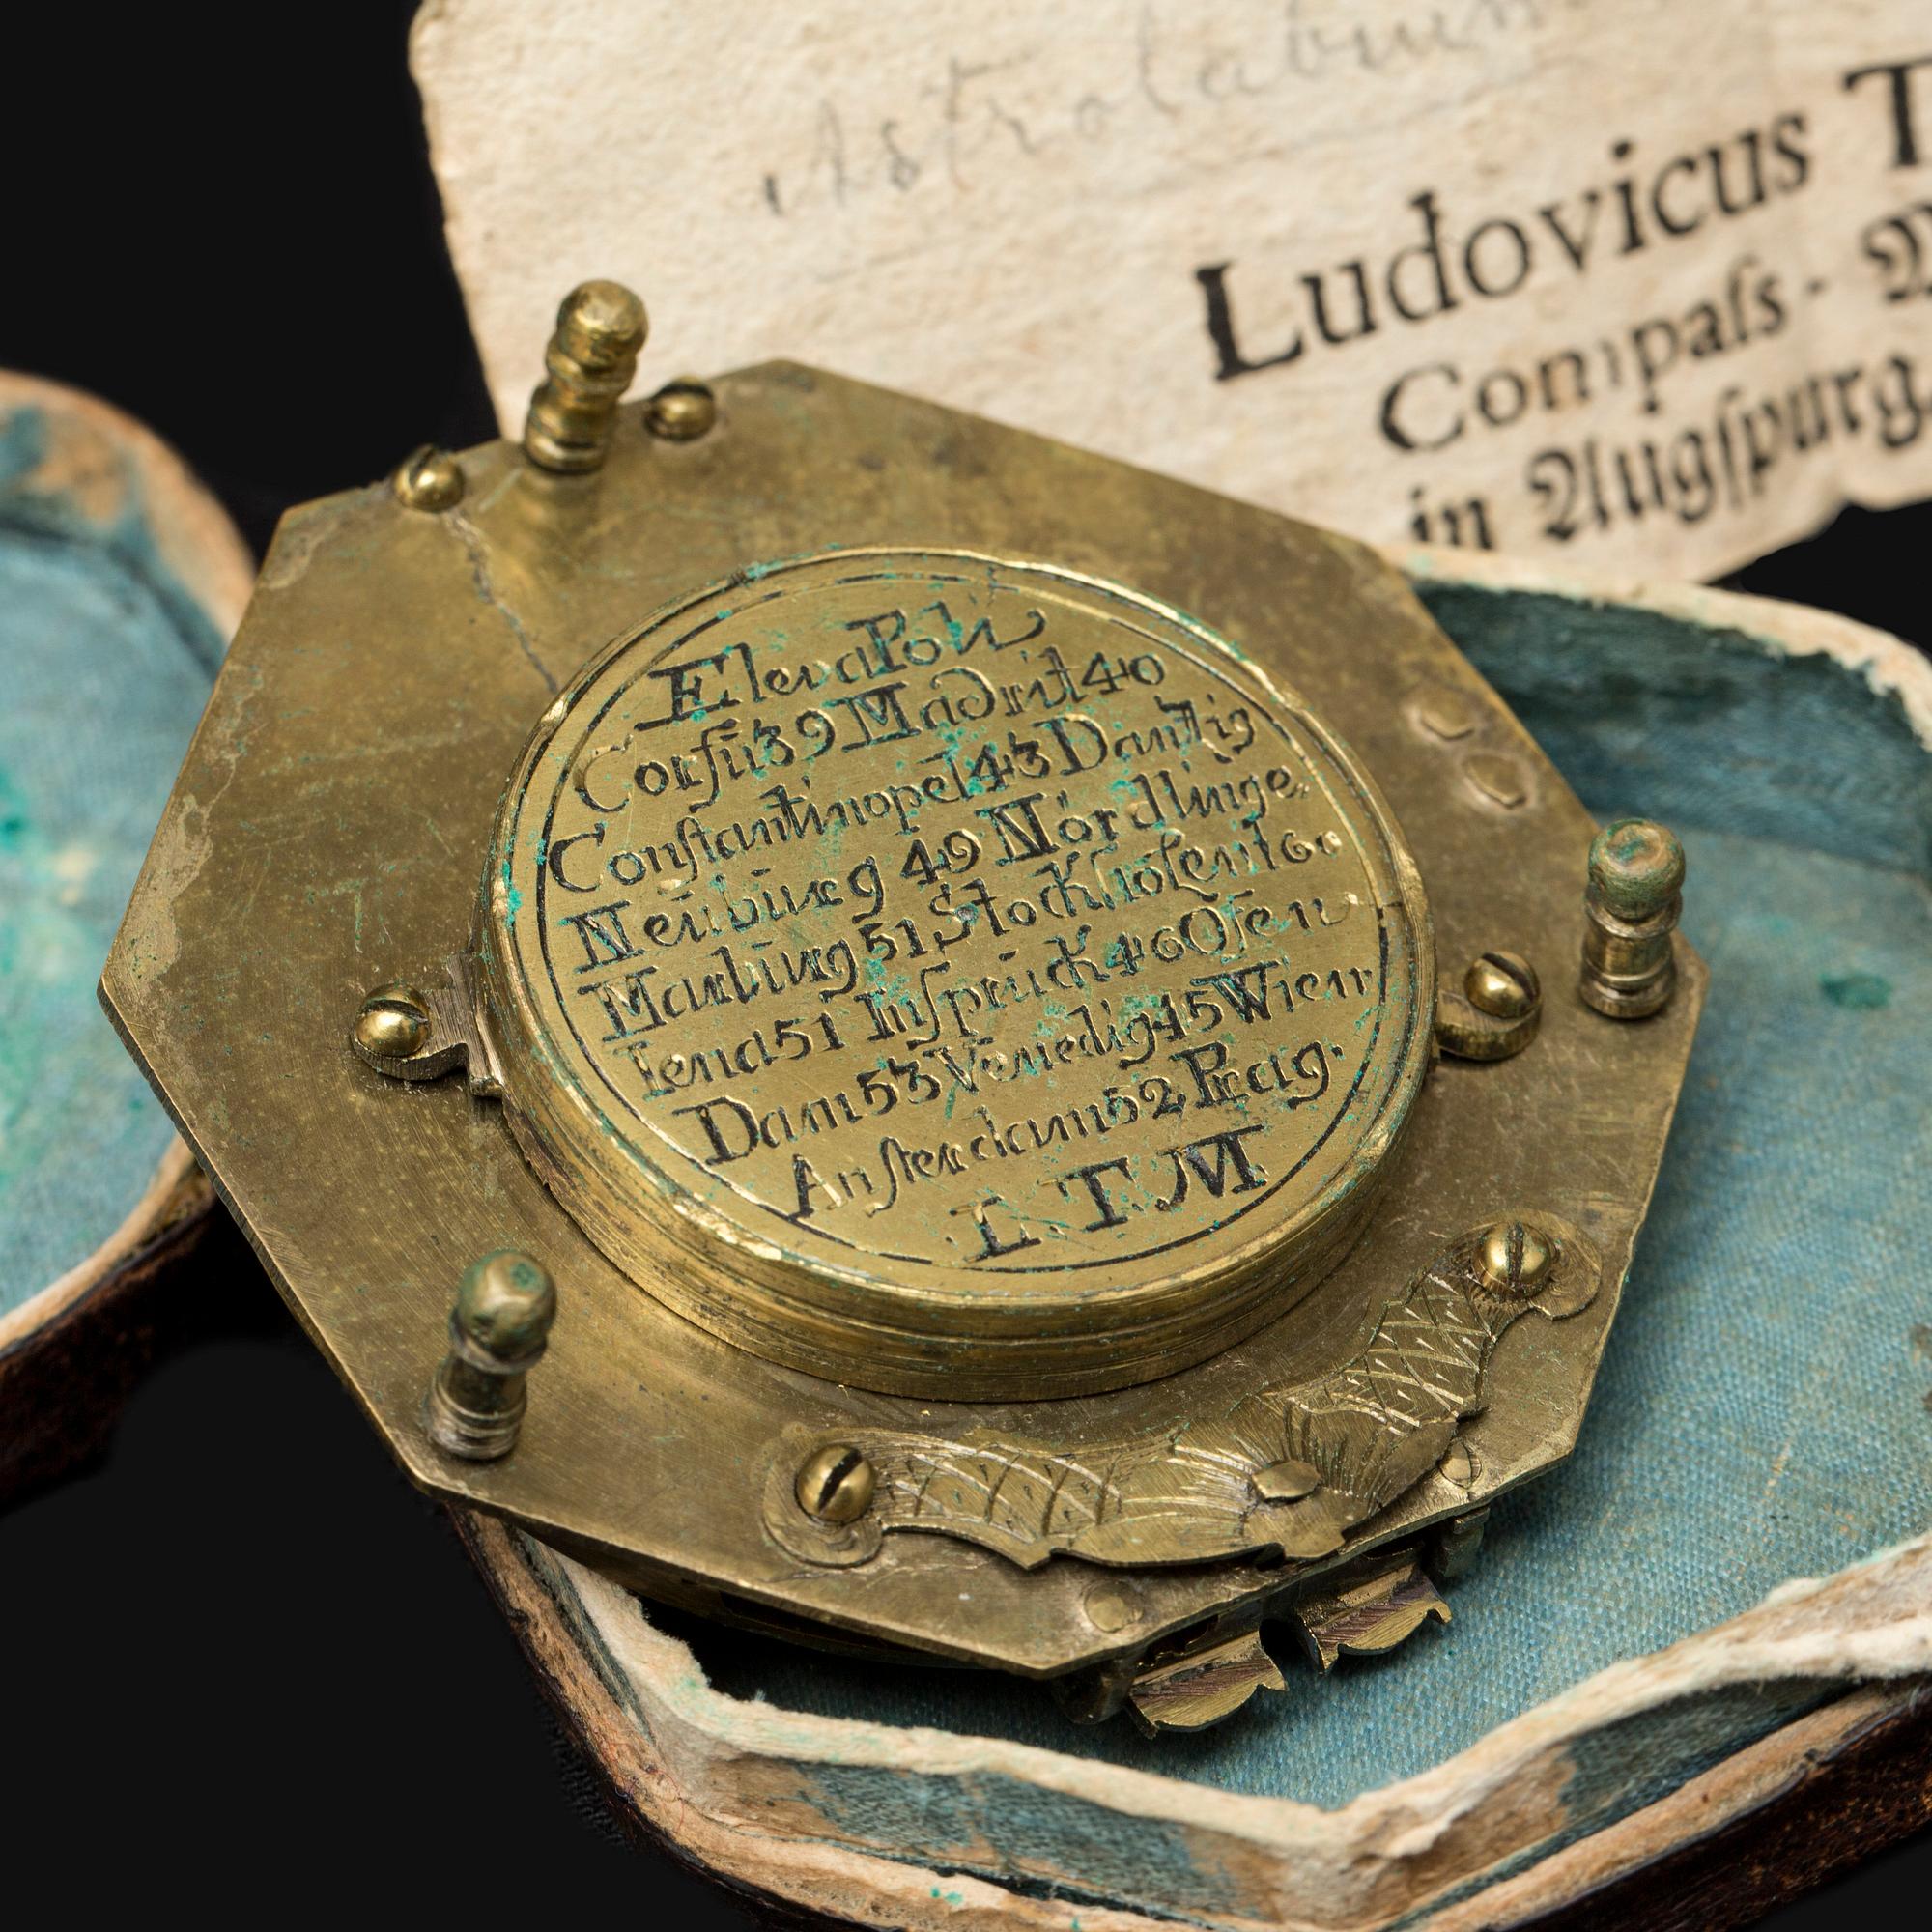 Astrolabium
Ludovicus T
Compaſs - M
in Augſpurg
Eleva Poli
Corfü 39 Madrit 40
Conſtantinopel 43 Dantzig
Neüburg 49 Nördlinge.
Marburg 51 Stockholem 60
Iena 51 Inſprück 46 Ofen
Dam 53 Venedig 45 Wien
Amſterdam 52 Prag.
L.T.M